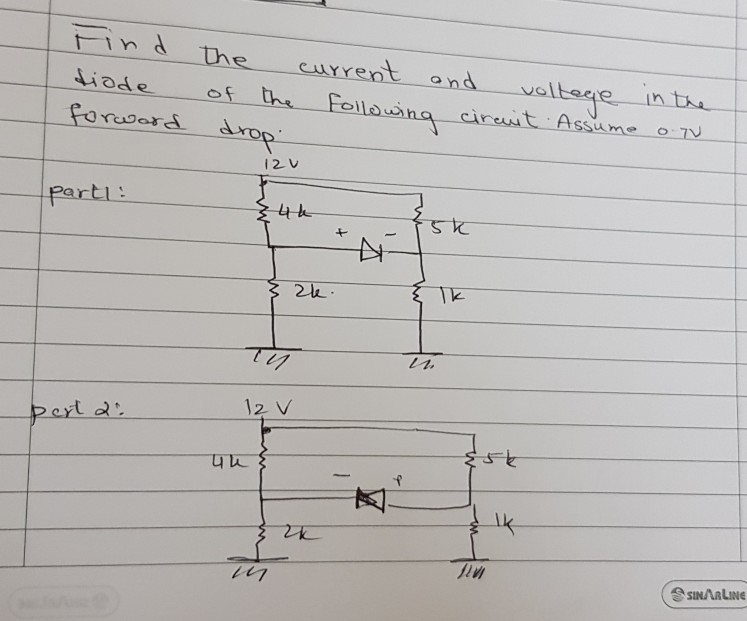 Find the current and voltage in the
diode of the following circuit. Assume 0.7V
forward drop.
12V
part1:
4k
+ -
5k
2k.
1k
part 2:
12 V
4k
5k
- +
2k
1k
SINARLINE